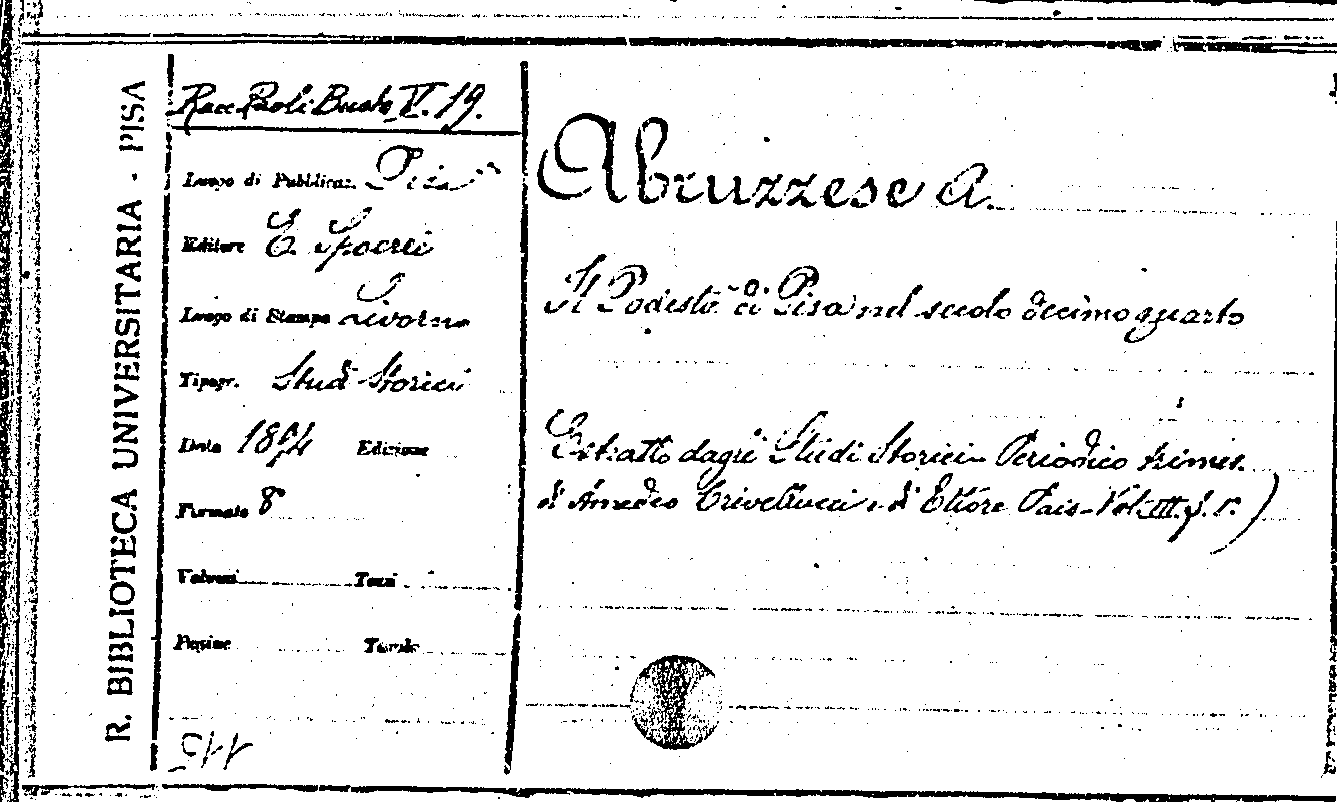 R. BIBLIOTECA UNIVERSITARIA - PISA
Racc. Paoli Busta V. 19.
Luogo di Pubblicaz. Pisa
Editore E. Spoerri
Luogo di Stampa Livorno
Tipogr. Studi Storici
Data 1894 Edizione
Formato 8
Volumi Tomi
Pagine Tavole
Abruzzese A.
Il Podestà di Pisa nel secolo decimoquarto
Estratto dagli Studi Storici - Periodico trimes.
di Amedeo Crivellucci e di Ettore Pais - Vol. III. f. 1.)